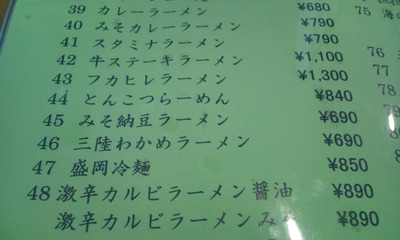 39 カレーラーメン ¥680
40 みそカレーラーメン ¥790
41 スタミナラーメン ¥790
42 牛ステーキラーメン ¥1,100
43 フカヒレラーメン ¥1,300
44 とんこつらーめん ¥840
45 みそ納豆ラーメン ¥690
46 三陸わかめラーメン ¥690
47 盛岡冷麺 ¥850
48 激辛カルビラーメン醤油 ¥890
激辛カルビラーメンみそ ¥890
75 海の
76
77
78
79
80
81